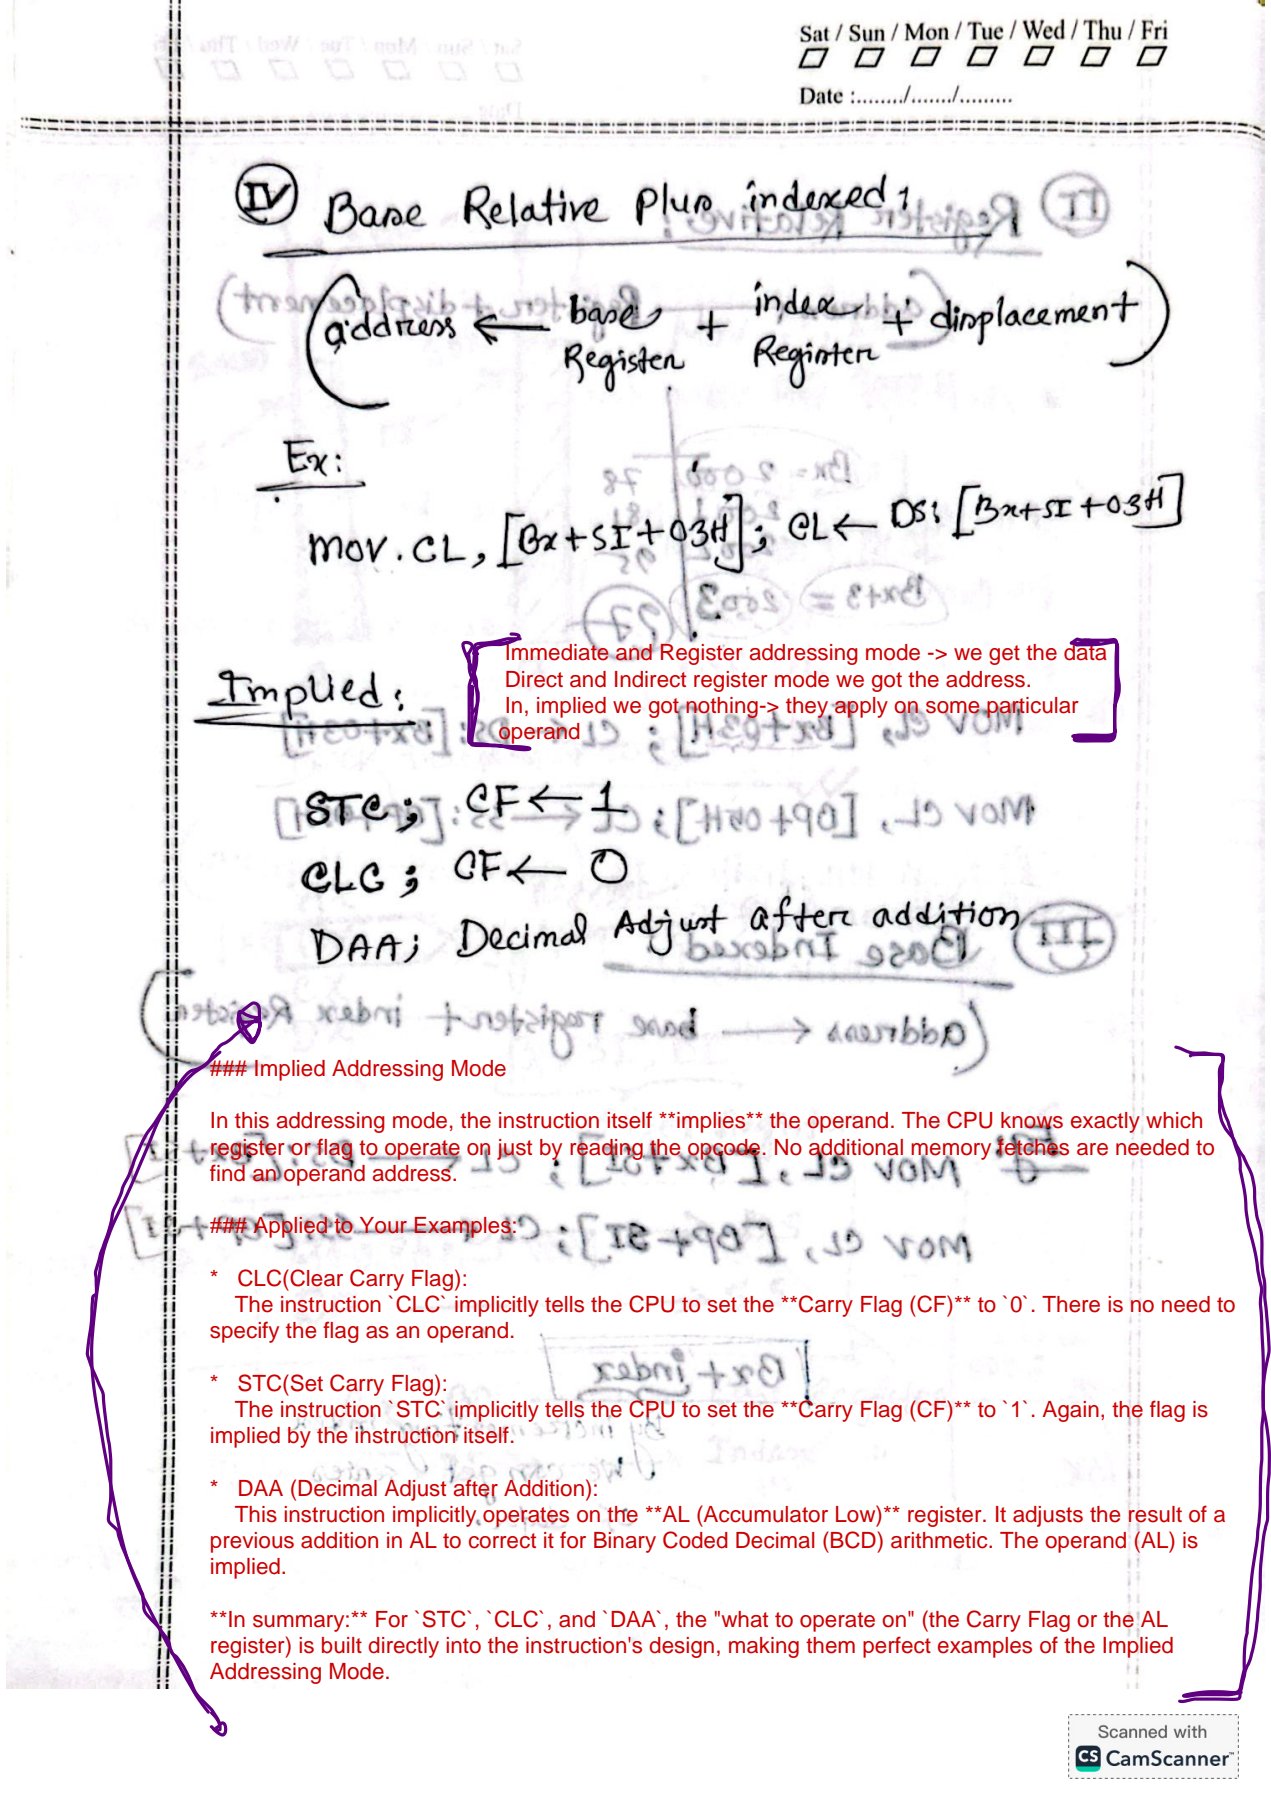 Sat / Sun / Mon / Tue / Wed / Thu / Fri
Date :......../......./.........
IV Base Relative Plus indexed:
(address ← base Register + index Register + displacement)
Ex:
MOV. CL, [Bx+SI+03H]; CL ← DS: [Bx+SI+03H]
Immediate and Register addressing mode -> we get the data
Direct and Indirect register mode we got the address.
In, implied we got nothing-> they apply on some particular
operand
Implied:
STC; CF ← 1
CLC; CF ← 0
DAA; Decimal Adjust after addition
### Implied Addressing Mode
In this addressing mode, the instruction itself **implies** the operand. The CPU knows exactly which
register or flag to operate on just by reading the opcode. No additional memory fetches are needed to
find an operand address.
### Applied to Your Examples:
* CLC(Clear Carry Flag):
The instruction `CLC` implicitly tells the CPU to set the **Carry Flag (CF)** to `0`. There is no need to
specify the flag as an operand.
* STC(Set Carry Flag):
The instruction `STC` implicitly tells the CPU to set the **Carry Flag (CF)** to `1`. Again, the flag is
implied by the instruction itself.
* DAA (Decimal Adjust after Addition):
This instruction implicitly operates on the **AL (Accumulator Low)** register. It adjusts the result of a
previous addition in AL to correct it for Binary Coded Decimal (BCD) arithmetic. The operand (AL) is
implied.
**In summary:** For `STC`, `CLC`, and `DAA`, the "what to operate on" (the Carry Flag or the AL
register) is built directly into the instruction's design, making them perfect examples of the Implied
Addressing Mode.
Scanned with
CS CamScanner